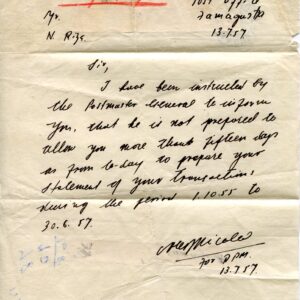 Post Office
Mr. Famagusta
N. Riza 13.7.57
Sir,
I have been instructed by
the Postmaster General to inform
you, that he is not prepared to
allow you more than fifteen days
as from to-day to prepare your
statement of your transactions
during the period 1.10.55 to
30.6.57.
for PM.
13.7.57